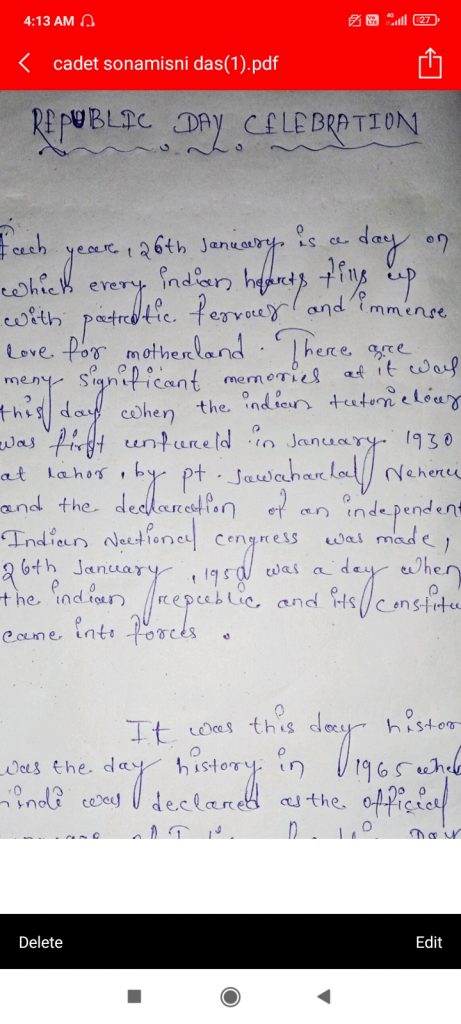 4:13 AM
4G
27
cadet sonamisni das(1).pdf
REPUBLIC DAY CELEBRATION
Each year, 26th January is a day on
which every indian hearts fills up
with patriotic fervour and immense
love for motherland. There are
meny significant memories at it was
this day when the indian
was first in January 1930
at Lahor, by pt. Jawaharlal Neheru
and the declaration of an independen
Indian National congress was made,
26th January, 1950 was a day when
the indian republic and its constitu
came into forces.
It was this day histor
was the day history in 1965 whe
hindi was declared as the official
Delete
Edit